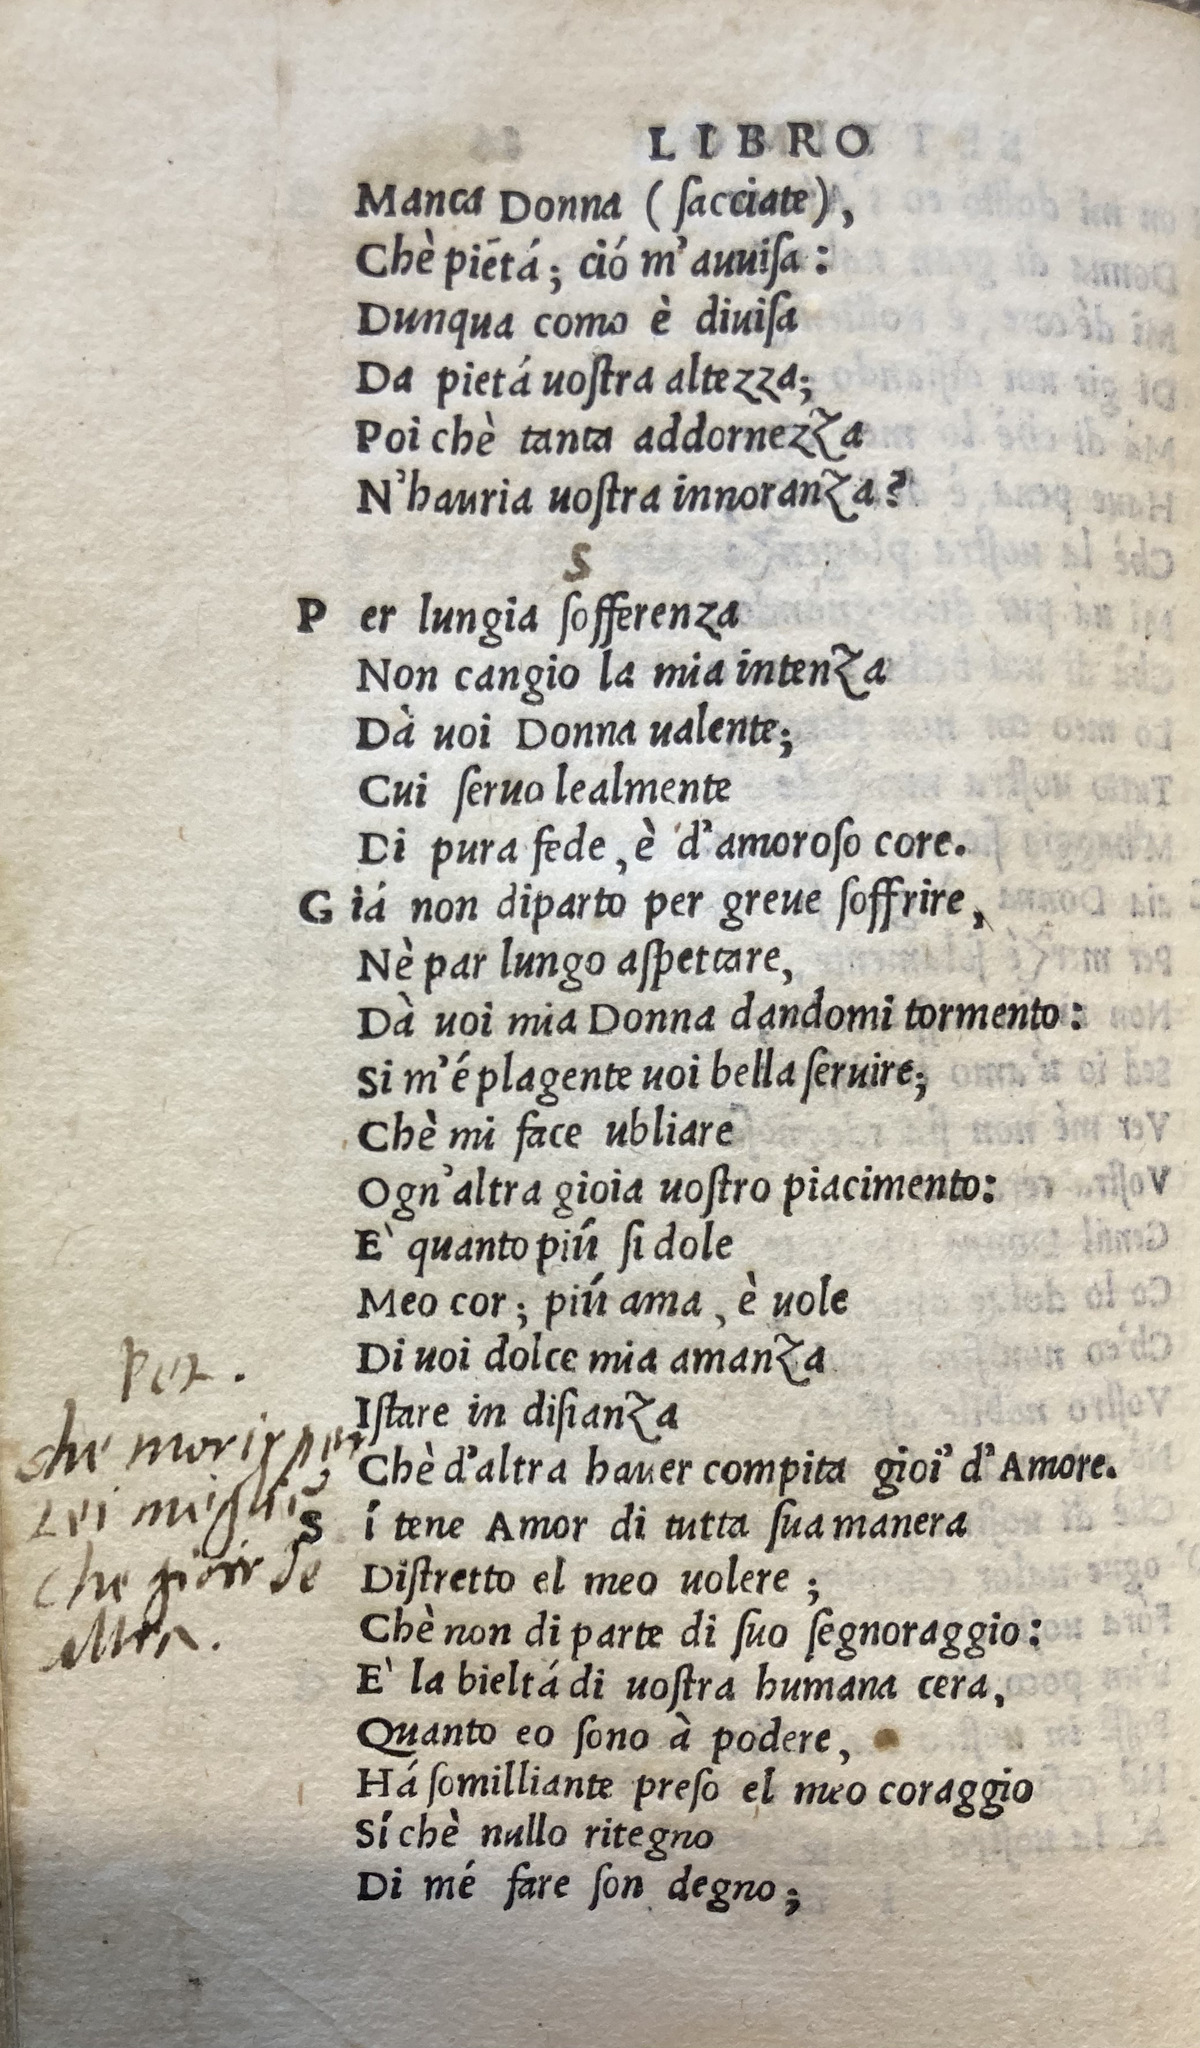 LIBRO
Manca Donna (ſacciate),
Chè piétá; ció m'auuiſa:
Dunqua como è diuiſa
Da pietá uoſtra altezza;
Poi chè tanta addornezza
N'hauria uoſtra innoranza?
S
Per lungia ſofferenza
Non cangio la mia intenza
Dà uoi Donna ualente;
Cui ſeruo lealmente
Di pura fede, è d'amoroſo core.
Giá non diparto per greue ſoffrire,
Nè par lungo aſpettare,
Dà uoi mia Donna dandomi tormento:
Si m'é plagente uoi bella ſeruire;
Chè mi face ubliare
Ogn'altra gioia uoſtro piacimento:
E' quanto piú ſi dole
Meo cor; piú ama, è uole
Di uoi dolce mia amanza
Iſtare in diſianza
Chè d'altra hauer compita gioi' d'Amore.
Sí tene Amor di tutta ſua manera
Diſtretto el meo uolere;
Chè non di parte di ſuo ſegnoraggio:
E' la bieltá di uoſtra humana cera,
Quanto eo ſono à podere,
Há ſomilliante preſo el meo coraggio
Sí chè nullo ritegno
Di mé fare ſon degno;
Pet.
che morir per
lei
che gioir de
altra.